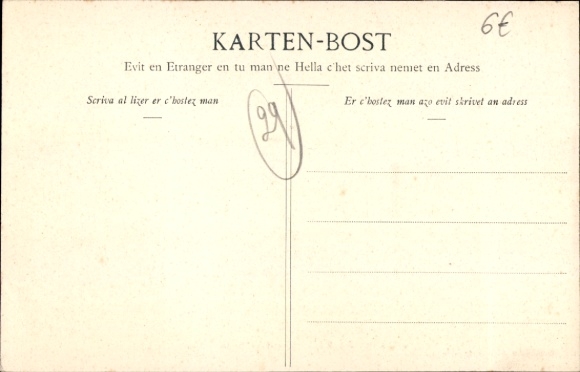 6€
KARTEN-BOST
Evit en Etranger en tu man ne Hella c'het scriva nemet en Adress
Scriva al lizer er c'hostez man
Er c'hostez man azo evit skrivet an adress
29